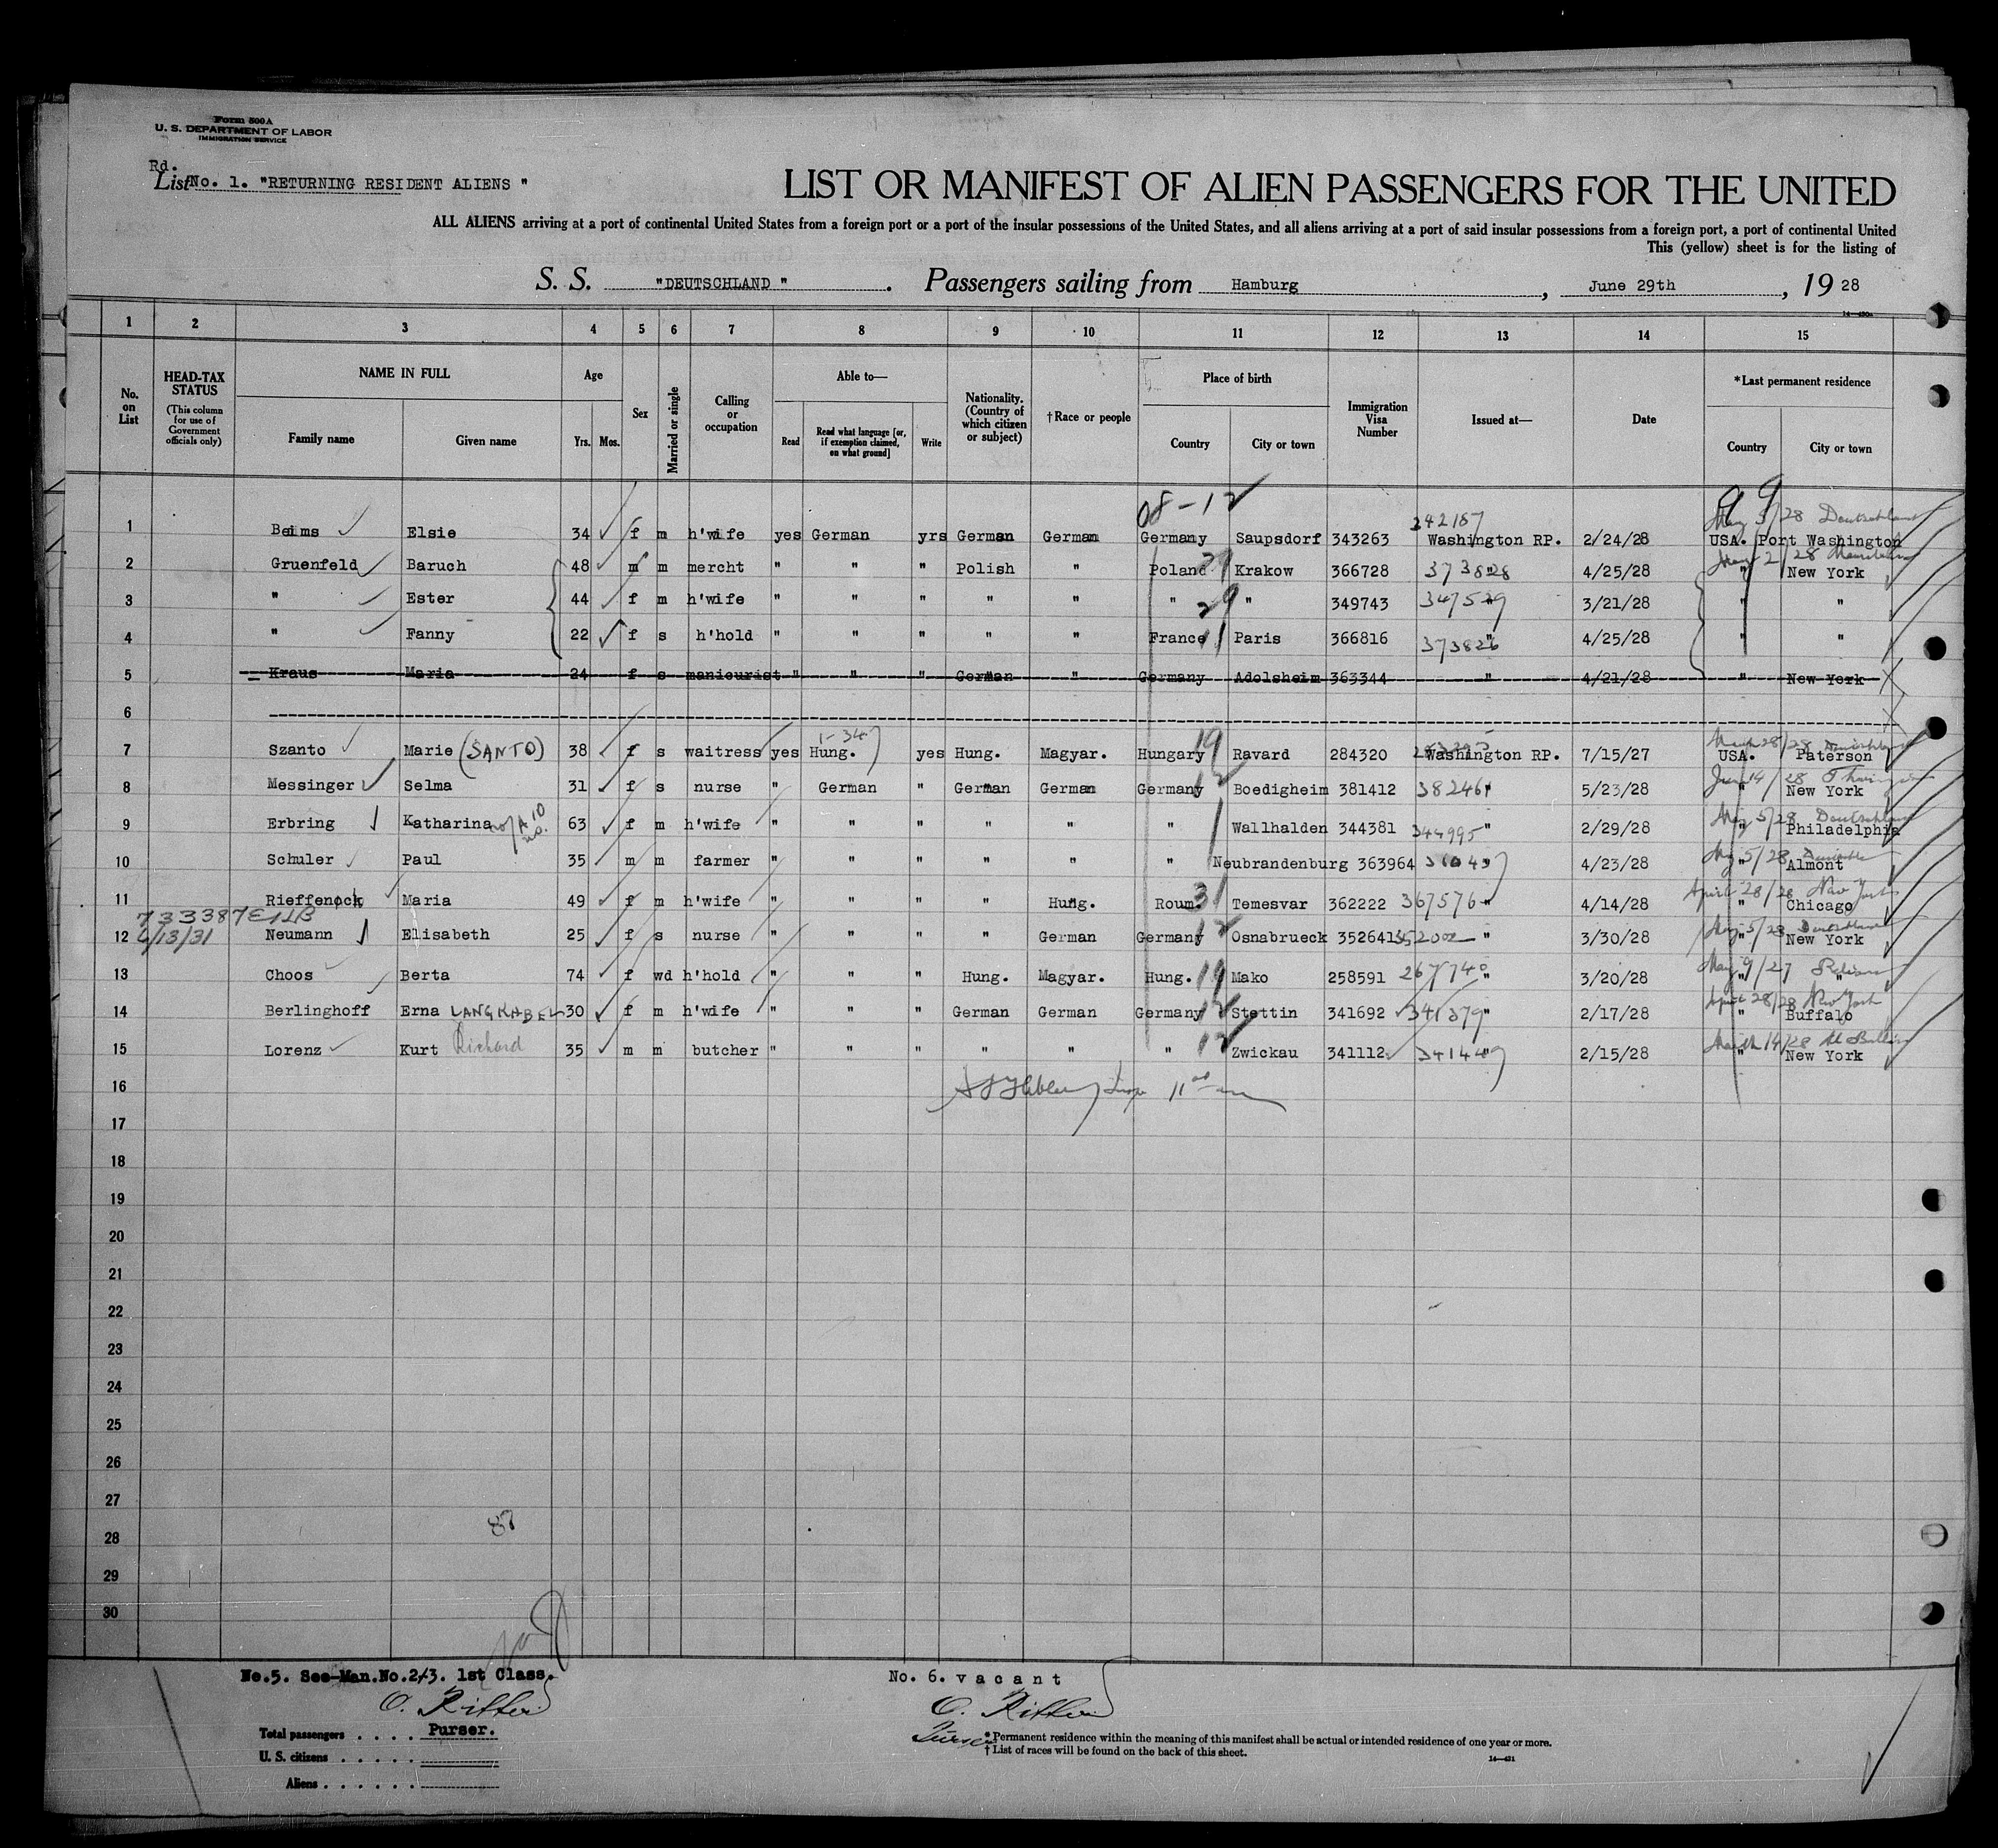 Form 500A
U. S. DEPARTMENT OF LABOR
IMMIGRATION SERVICE
Rd.
List No. 1. "RETURNING RESIDENT ALIENS "
LIST OR MANIFEST OF ALIEN PASSENGERS FOR THE UNITED
ALL ALIENS arriving at a port of continental United States from a foreign port or a port of the insular possessions of the United States, and all aliens arriving at a port of said insular possessions from a foreign port, a port of continental United
This (yellow) sheet is for the listing of
S. S. "DEUTSCHLAND " . Passengers sailing from Hamburg , June 29th , 19 28
1 2 3 4 5 6 7 8 9 10 11 12 13 14 15
No. on List
HEAD-TAX STATUS
(This column for use of Government officials only)
NAME IN FULL
Family name Given name
Age
Yrs. Mos.
Sex
Married or single
Calling or occupation
Able to—
Read Read what language [or, if exemption claimed, on what ground] Write
Nationality. (Country of which citizen or subject)
†Race or people
Place of birth
Country City or town
Immigration Visa Number
Issued at—
Date
*Last permanent residence
Country City or town
08-12 9 9
242187 May 5/28 Deutschland
1 Beims Elsie 34 f m h'wife yes German yrs German German Germany Saupsdorf 343263 Washington RP. 2/24/28 USA. Port Washington
2 Gruenfeld Baruch 48 m m mercht " " " Polish " Poland Krakow 366728 373828 " 4/25/28 " New York
3 " Ester 44 f m h'wife " " " " " " " 349743 347529 " 3/21/28 " "
4 " Fanny 22 f s h'hold " " " " " France Paris 366816 373826 " 4/25/28 " "
5 Kraus Maria 24 f s manicurist " " " German " Germany Adelsheim 363344 " 4/21/28 " New York
6
7 Szanto Marie (SANTO) 38 f s waitress yes Hung. yes Hung. Magyar. Hungary 19 Ravard 284320 Washington RP. 7/15/27 USA. Paterson
8 Messinger Selma 31 f s nurse " German " German German Germany Boedigheim 381412 38246 " 5/23/28 " New York
9 Erbring Katharina 63 f m h'wife " " " " " " Wallhalden 344381 344995 " 2/29/28 " Philadelphia
10 Schuler Paul 35 m m farmer " " " " " " Neubrandenburg 363964 " 4/23/28 " Almont
11 Rieffenack Maria 49 f m h'wife " " " " Hung. Roum. 31 Temesvar 362222 367576 " 4/14/28 " Chicago
733387
6/13/31
12 Neumann Elisabeth 25 f s nurse " " " " German Germany Osnabrueck 352641 352002 " 3/30/28 " New York
13 Choos Berta 74 f wd h'hold " " " Hung. Magyar. Hung. 19 Mako 258591 267740 " 3/20/28 " "
14 Berlinghoff Erna LANGKABEL 30 f m h'wife " " " German German Germany 12 Stettin 341692 341379 " 2/17/28 " Buffalo
15 Lorenz Kurt Richard 35 m m butcher " " " " " " 12 Zwickau 341112 34144 " 2/15/28 " New York
16
17
18
19
20
21
22
23
24
25
26
27
87
28
29
30
No.5. See-Man.No.2/3. 1st Class. No. 6. v a c a n t
O. Ritter O. Ritter
Purser
Total passengers . . . . Purser.
U. S. citizens . . . . .
Aliens . . . . . .
*Permanent residence within the meaning of this manifest shall be actual or intended residence of one year or more.
†List of races will be found on the back of this sheet.
14—431